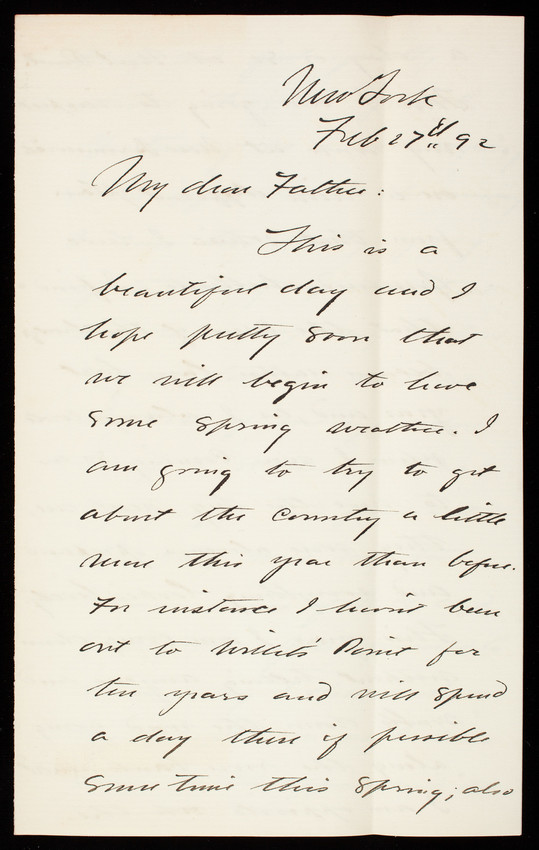 New York
Feb 27th 92
My dear Father:
This is a
beautiful day and I
hope pretty soon that
we will begin to have
some spring weather. I
am going to try to get
about the country a little
more this year than before.
For instance I havn't been
out to Willet's Point for
ten years and will spend
a day there if possible
some time this spring; also